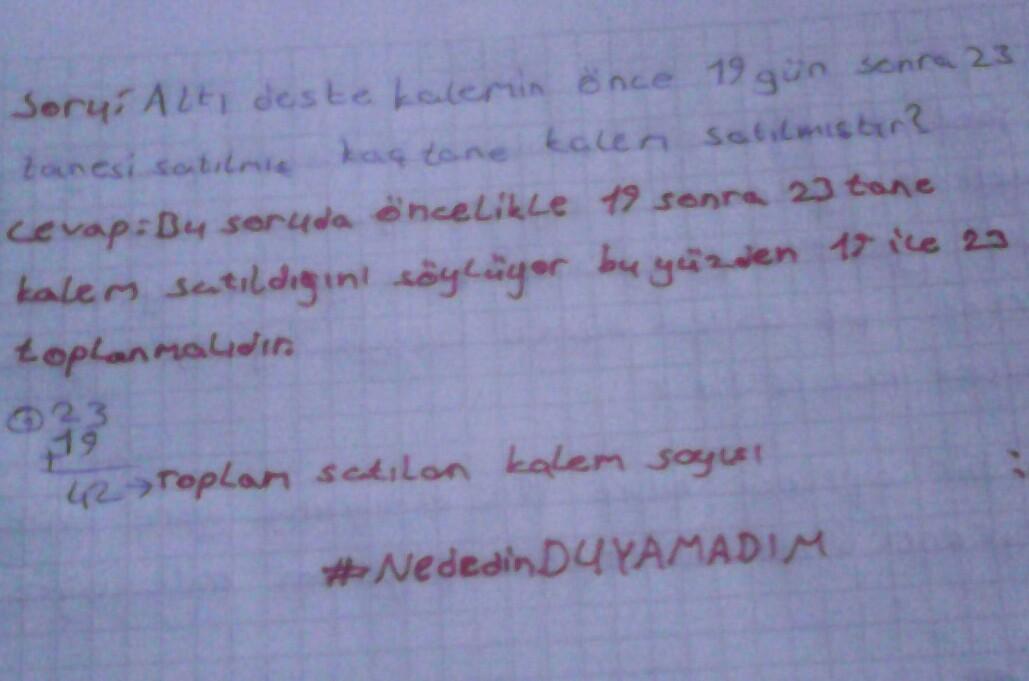 Soru: Altı deste kalemin önce 19 gün sonra 23
tanesi satılmış kaç tane kalem satılmıştır?
Cevap: Bu soruda öncelikle 19 sonra 23 tane
kalem satıldığını söylüyor bu yüzden 19 ile 23
toplanmalıdır.
① 23
+19
42 → Toplam satılan kalem sayısı :
#NededinDUYAMADIM